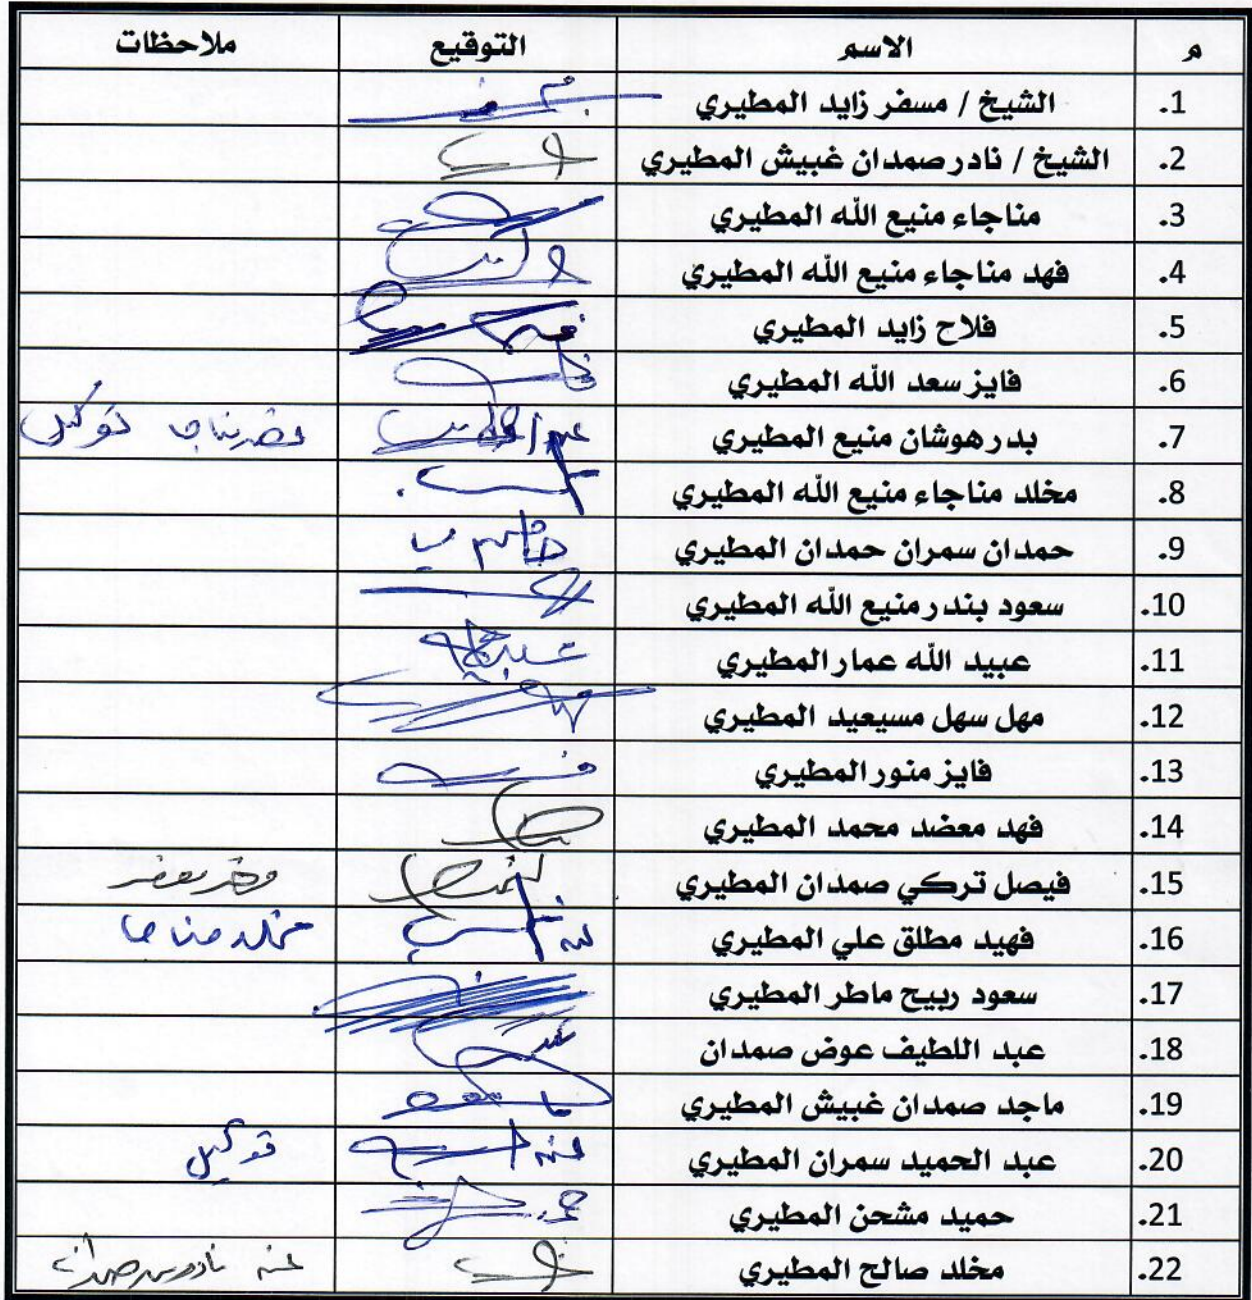 م الاسم التوقيع ملاحظات
1. الشيخ / مسفر زايد المطيري
2. الشيخ / نادر صمدان غبيش المطيري
3. مناجاء منيع الله المطيري
4. فهد مناجاء منيع الله المطيري
5. فلاح زايد المطيري
6. فايز سعد الله المطيري
7. بدر هوشان منيع المطيري توكيل
8. مخلد مناجاء منيع الله المطيري
9. حمدان سمران حمدان المطيري
10. سعود بندر منيع الله المطيري
11. عبيد الله عمار المطيري
12. مهل سهل مسيعيد المطيري
13. فايز منور المطيري
14. فهد معضد محمد المطيري
15. فيصل تركي صمدان المطيري
16. فهيد مطلق علي المطيري عنه مخلد مناجا
17. سعود ربيح ماطر المطيري
18. عبد اللطيف عوض صمدان
19. ماجد صمدان غبيش المطيري
20. عبد الحميد سمران المطيري عنه توكيل
21. حميد مشحن المطيري
22. مخلد صالح المطيري عنه نادر صمدان